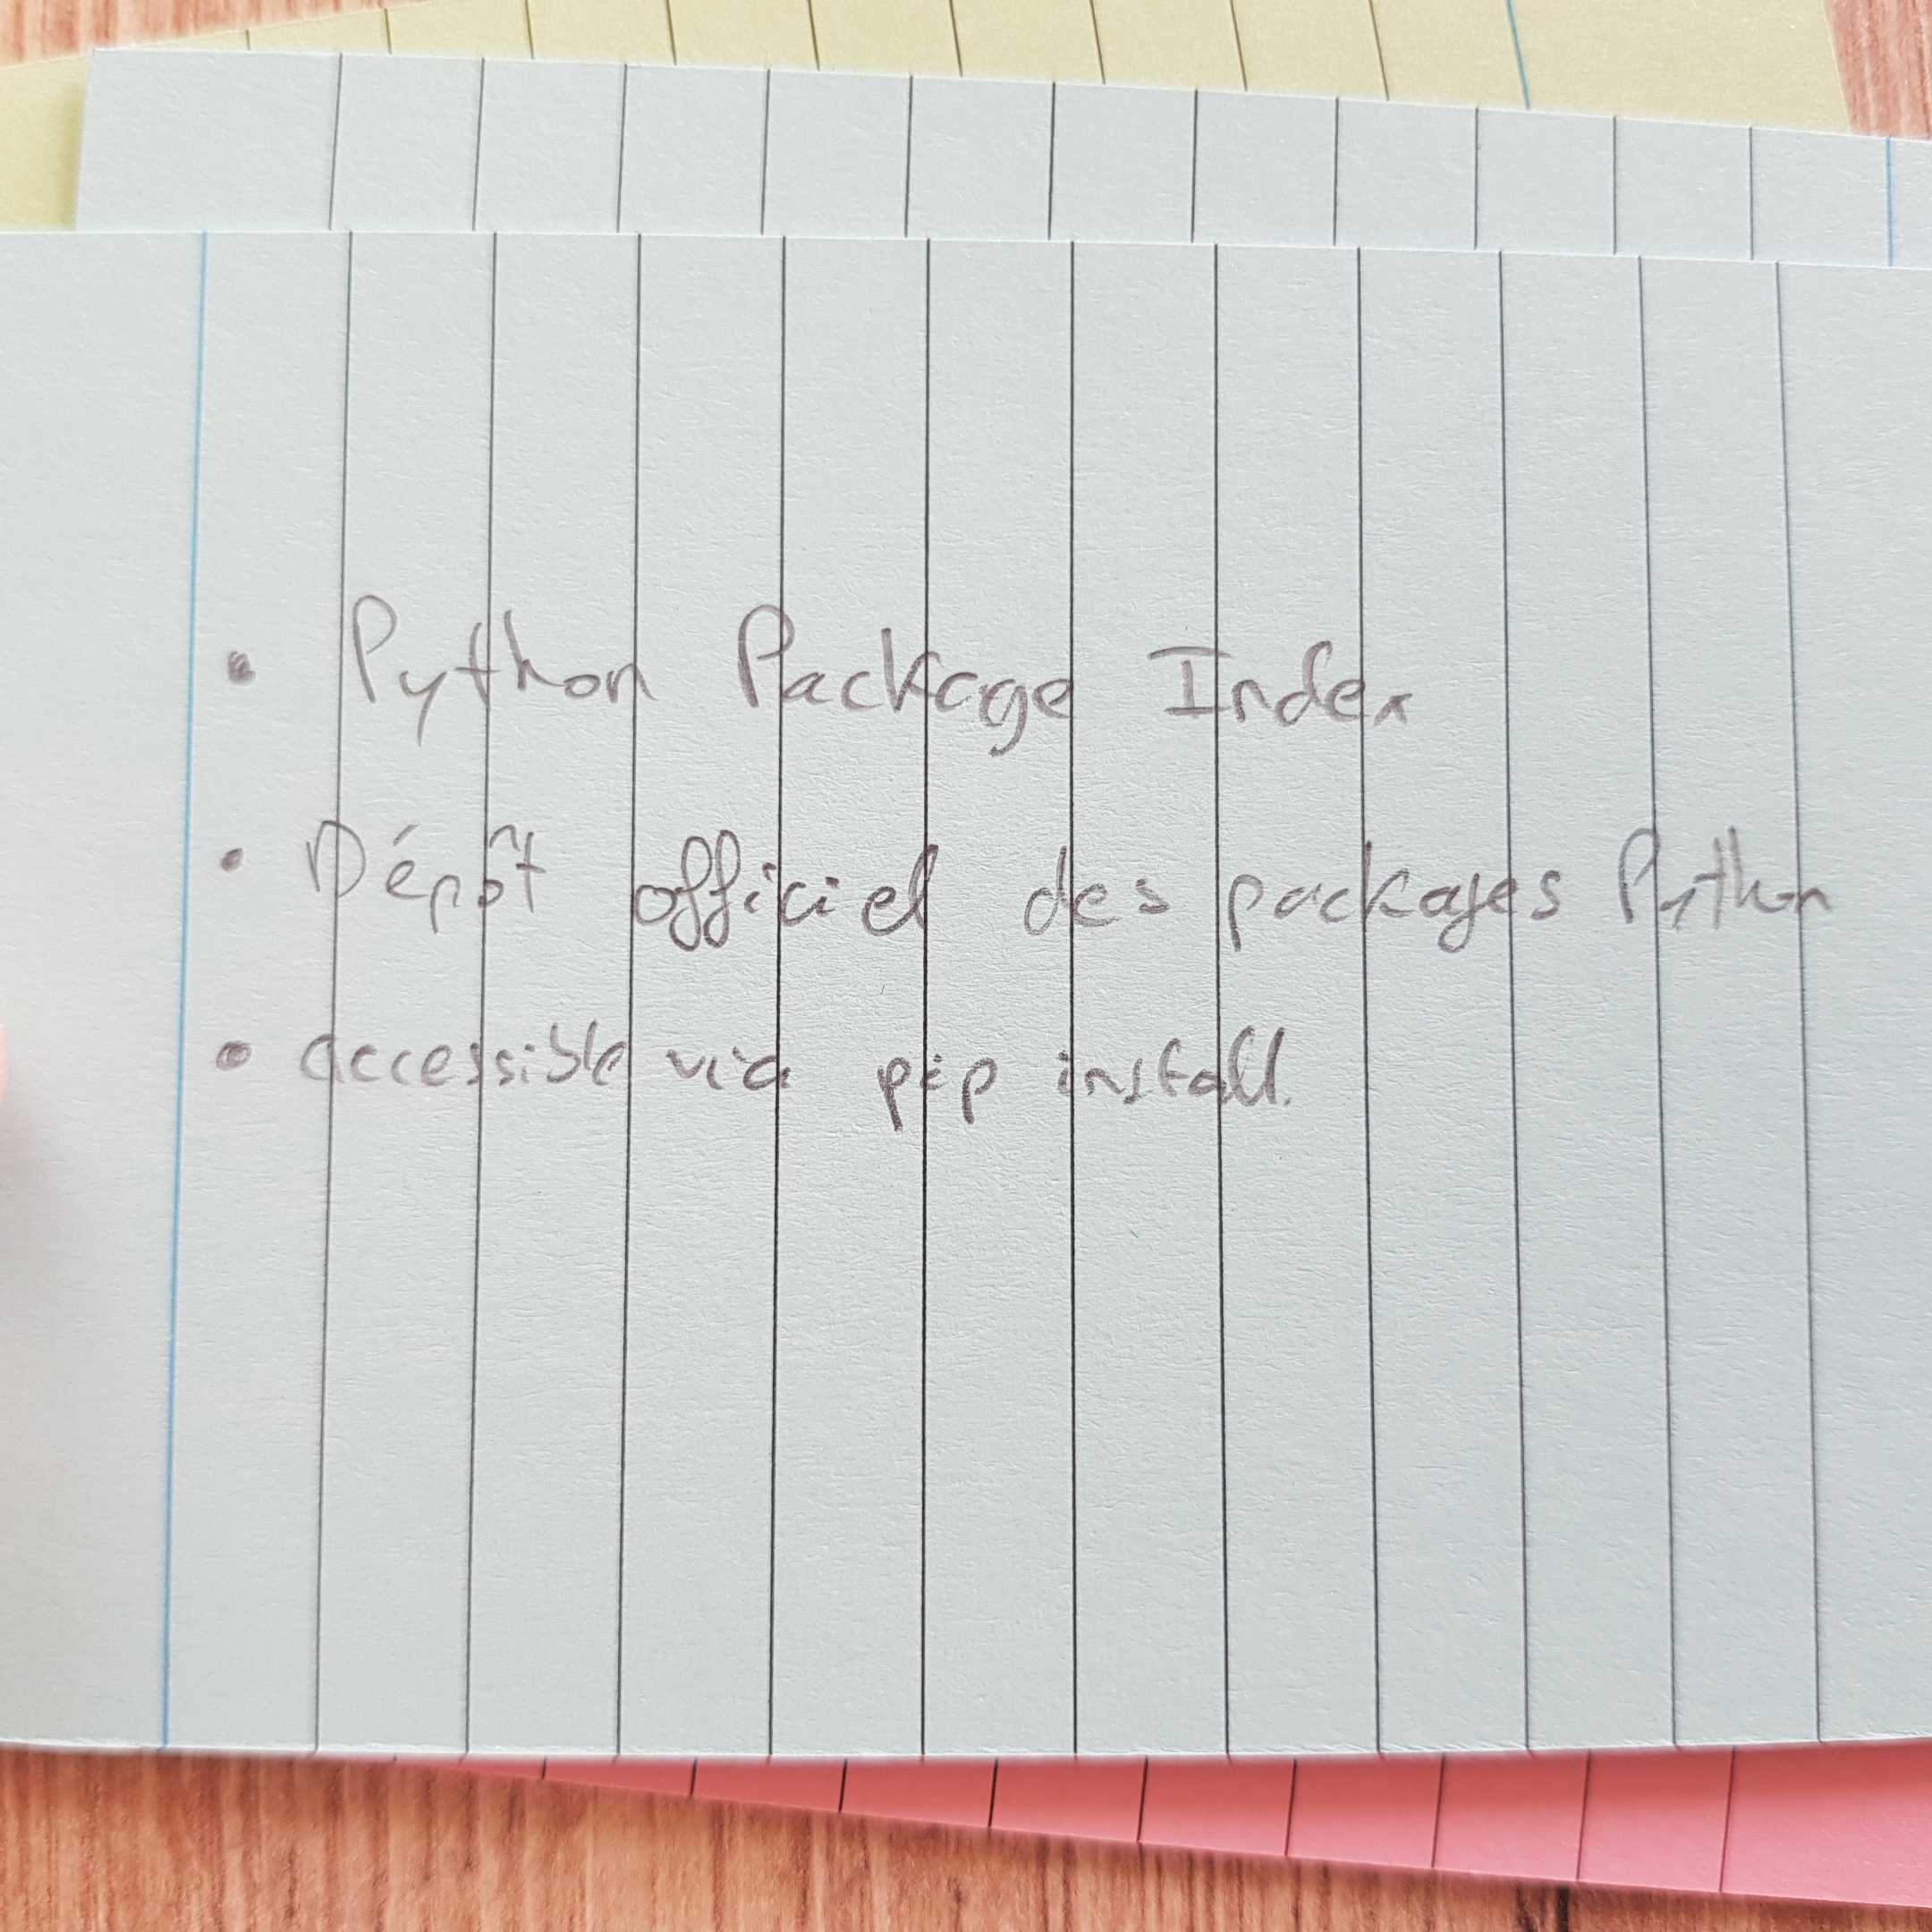 • Python Package Index
• Dépôt officiel des packages Python
• accessible via pip install.